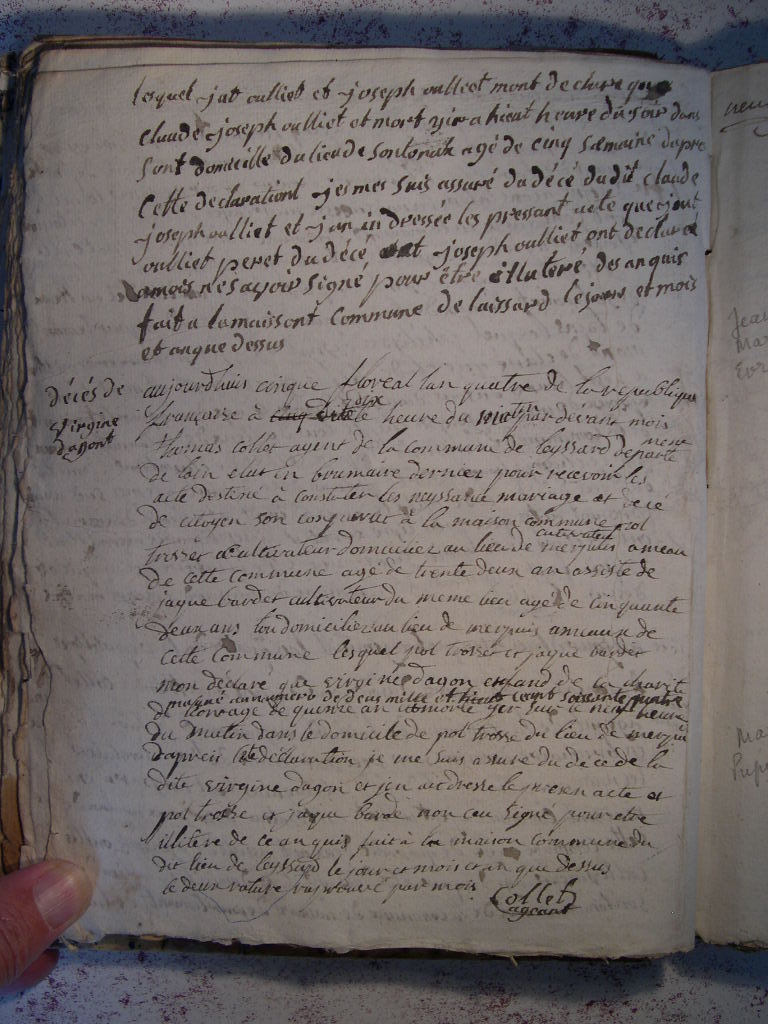 lesquel jat oulliet et joseph oulliet mont declare que
claude joseph oulliet et mort yir a hieut heure du soir dans
sont domicille du lieu de sontonat agé de cinq semaine dapre
Cette declarationt jesmes suis assuré du décé dudit claude
joseph oulliet et jan in dressée les pressant acte que jout
oulliet peret du décé joseph oulliet ont declaré
amois ne savoir signé pour être illuteré des anquis
fait a lamaissont Commune de laissard lejour et mois
et anque dessus
décés de
Virgine
dagont
aujourdhuis cinque floreal lan quatre de la republique
francoise à dix heure du matin par dévant mois
thomas collet agent de la commune de leyssard departe mene
de lain elut en brumaire dernier pour recevoir les
acte destiné à constater les neyssance mariage et décé
de citoyen son conparut à la maison commune pol
trosset cultivateur domicilier au lieu de merpuis ameau
cultivateur
de cette commune agé de trente deux an assisté de
jaque bardet cultivateur du meme lieu agé de cinquante
deux ans tou domicilier au lieu de merpuis anneaux de
cette commune lesquel pol trosset et jaque bardet
mon déclaré que virginé dagon enfand de la charité
marqué au numero de deus mille et cent soissante quatre
de lonvage de quinze an morte yer sur le neuf heure
du matin dans le domicile de pol trosse du lieu de merpui
dapreis la déclaration je me suis assuré du décé de la
dite virgine dagon et jen ait dresse le presen acte et
pol trosse et jaque bardé non ceu signé pour etre
illitere de ce an quis fait à la maison commune du
dit lieu de leyssard le jour et mois et an que dessus
le deux rature haprouvé par mois
Collet
ageant